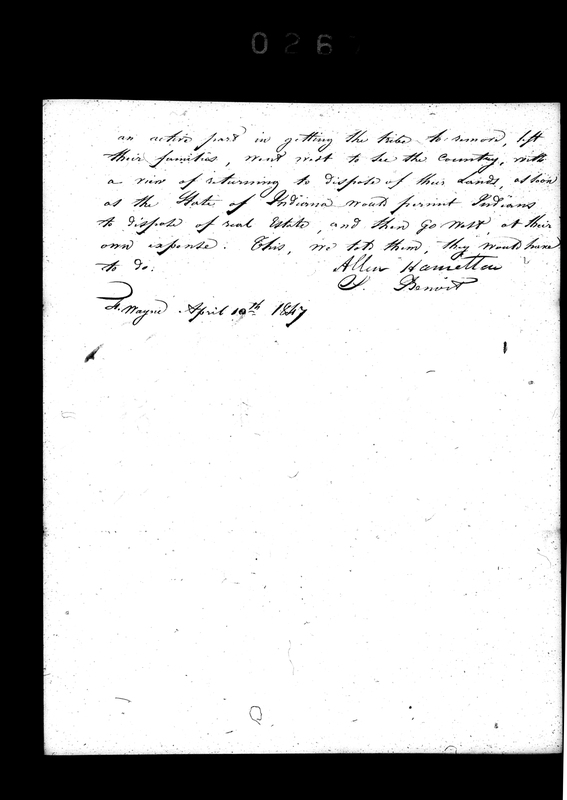 026
an active part in getting the tribe to remove, left
their families, went west to see the Country, with
a view of returning to dispose of their Lands, as soon
as the State of Indiana would permit Indians
to dispose of real Estate, and then go West, at their
own expense. This, we told them, they would have
to do.
Allen Hamilton
J. Benoit
Ft. Wayne April 10th 1847